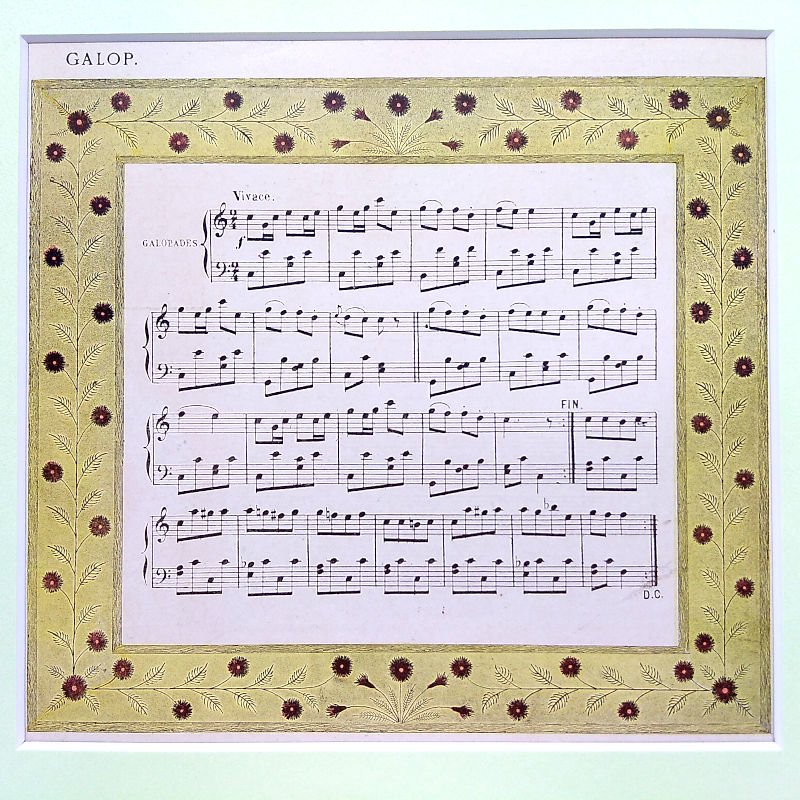 GALOP.
Vivace.
GALOPADES
2 4
f
2 4
FIN.
D.C.